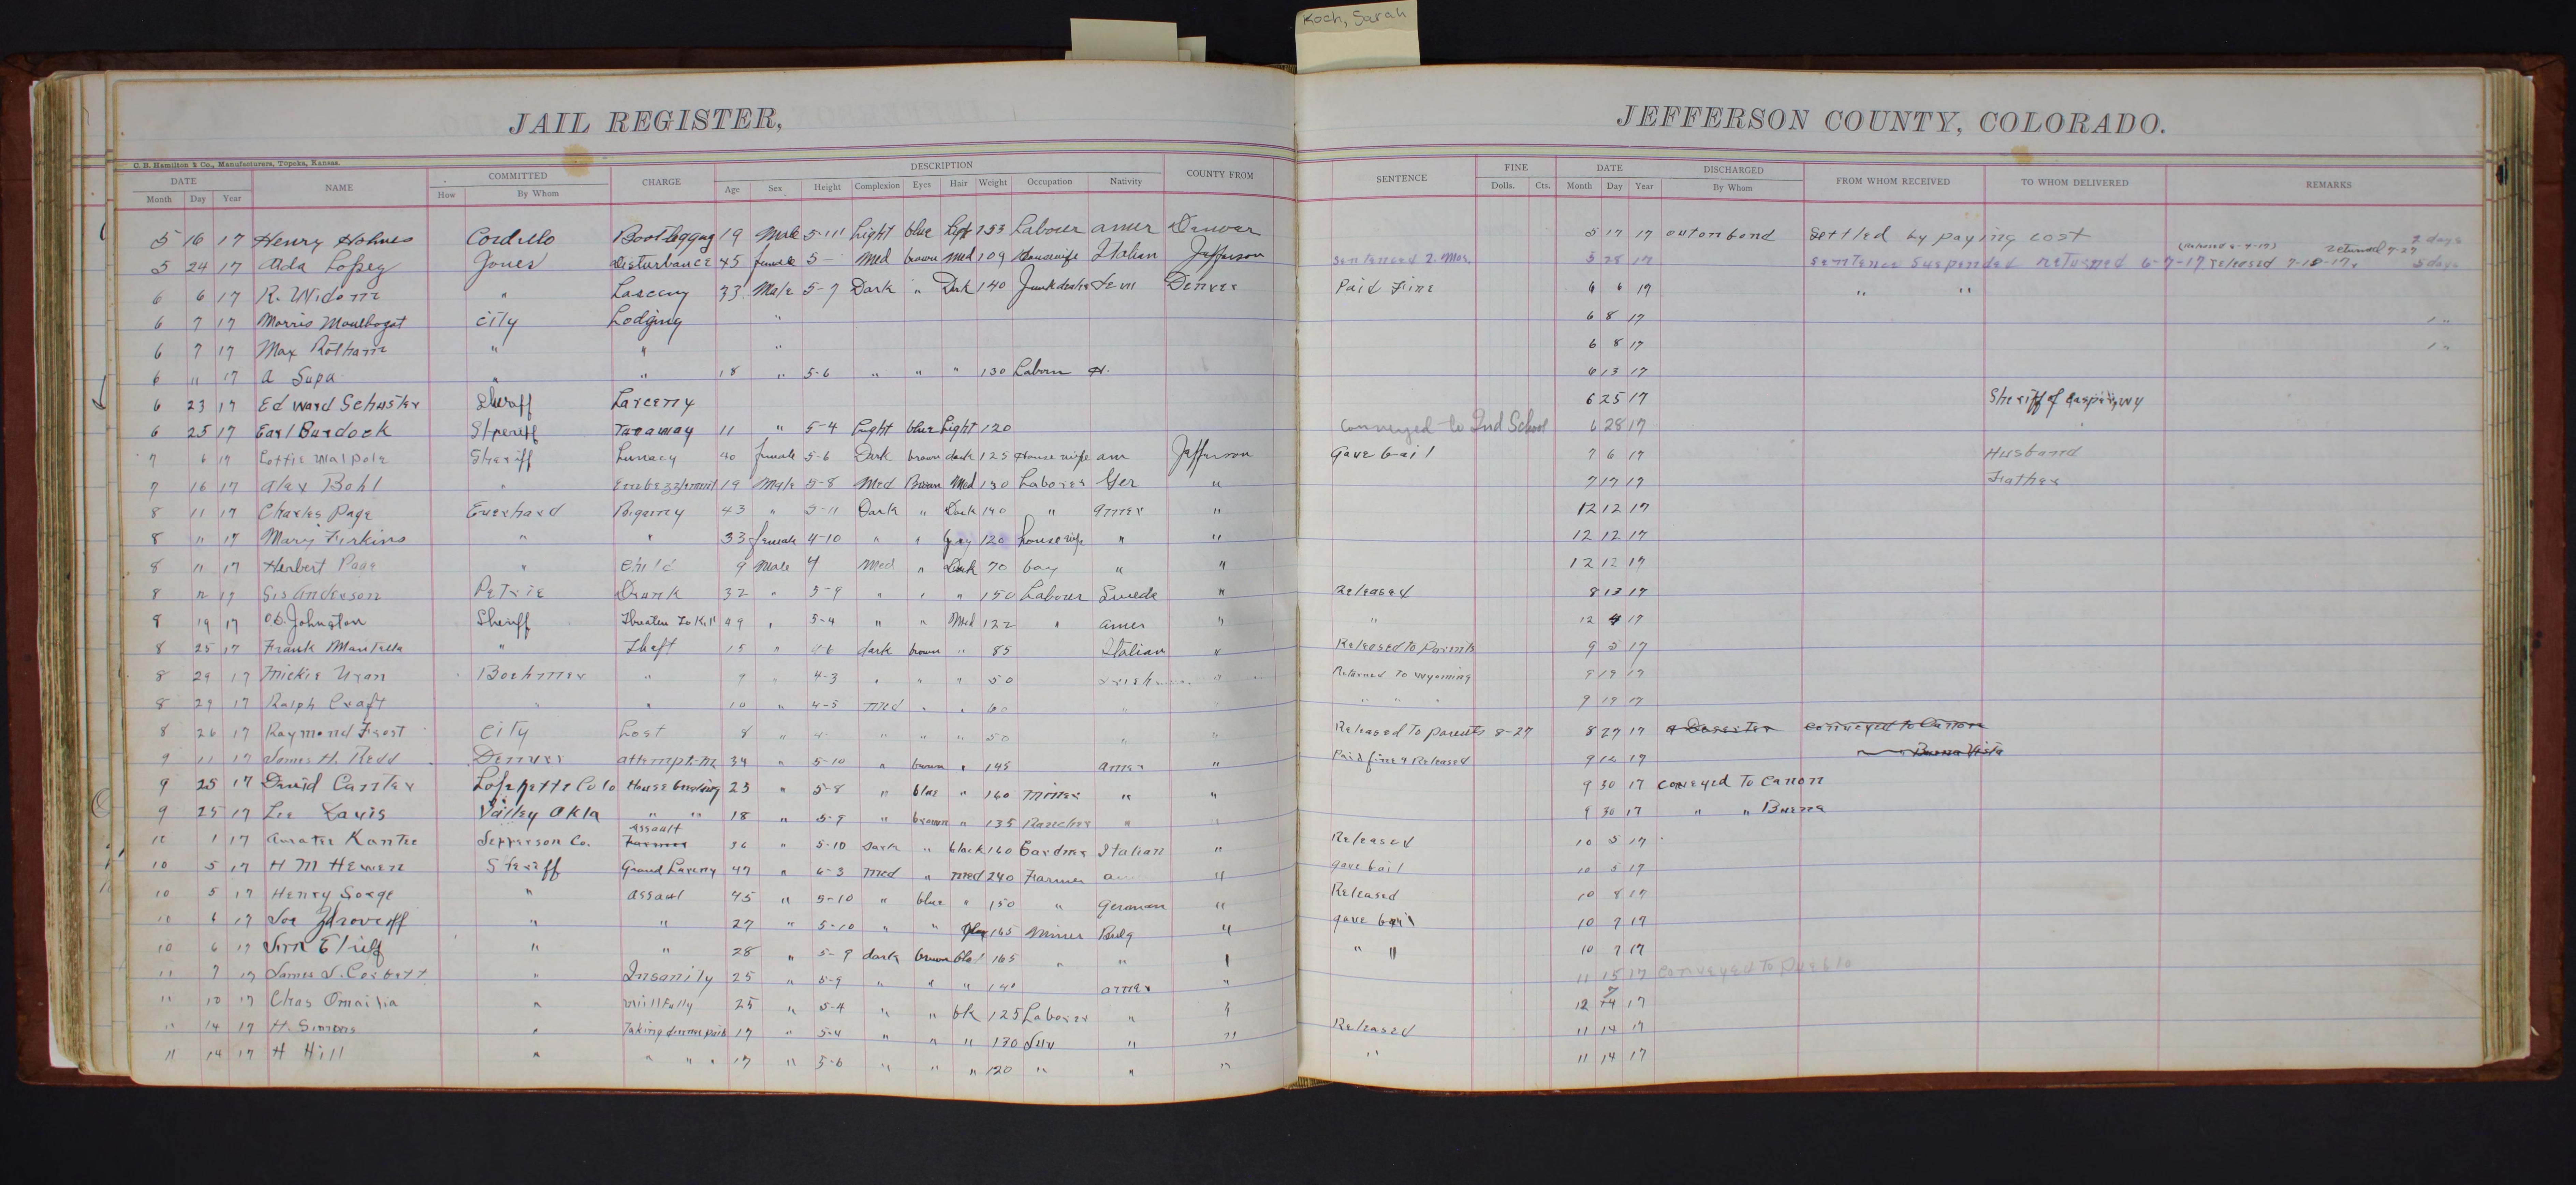 Koch, Sarah
JAIL REGISTER,
JEFFERSON COUNTY, COLORADO.
C. B. Hamilton & Co., Manufacturers, Topeka, Kansas.
DATE NAME COMMITTED CHARGE DESCRIPTION COUNTY FROM SENTENCE FINE DATE DISCHARGED FROM WHOM RECEIVED TO WHOM DELIVERED REMARKS
Month Day Year How By Whom Age Sex Height Complexion Eyes Hair Weight Occupation Nativity Dolls. Cts. Month Day Year By Whom
5 16 17 Henry Hohnes Cordillo Bootlegging 19 Male 5-11 Light blue Light 153 Labourer amer Denver 5 17 17 out on bond Settled by paying cost 2 days
5 24 17 Aida Lopez Jones Disturbance 45 female 5- Med brown Med 109 Housewife Italian Jefferson Sentenced 2. Mos. 5 28 17 sentence suspended returned 6-7-17 released 7-18-17 returned 7-27 5 days
6 6 17 R. Widom " Larceny 33 Male 5-7 Dark " Dark 140 Junk dealer Denver Paid Fine 6 6 17 " "
6 7 17 Morris City Lodging " 6 8 17 1 "
6 7 17 Max Rotham " " " 6 8 17 1 "
6 11 17 A Supa " " 18 " 5-6 " " " 130 Laborer 6 13 17
6 23 17 Edward Schuster Sheriff Larceny 6 25 17 Sheriff of Casper, Wy
6 25 17 Earl Burdock Sheriff Runaway 11 " 5-4 Light blue Light 120 Conveyed to Ind School 6 28 17
7 6 17 Lottie Walpole Sheriff Lunacy 40 female 5-6 Dark brown dark 125 House wife am Jefferson Gave bail 7 6 17 Husband
7 16 17 Alex Bohl " Embezzlement 19 Male 5-8 Med Brown Med 130 Laborer Ger " 7 17 17 Father
8 11 17 Charles Page Everhard Bigamy 43 " 5-11 Dark " Dark 140 " Amer " 12 12 17
8 11 17 Mary Firkins " " 33 female 4-10 " " Gray 120 house wife " " 12 12 17
8 11 17 Herbert Page " Child 9 Male 4 Med " Dark 70 boy " " 12 12 17
8 12 17 Gis Anderson Petrie Drunk 32 " 5-9 " " " 150 Labourer Swede " Released 8 13 17
8 19 17 O.D. Johnston Sheriff Threaten to Kill 49 " 5-4 " " Med 122 " Amer " " 12 4 17
8 25 17 Frank Mantella " Theft 15 " 4-6 dark brown " 85 Italian " Released to Parents 9 5 17
8 29 17 Mickie Uran Boehmer " 9 " 4-3 " " " 50 Irish " Returned to Wyoming 9 19 17
8 29 17 Ralph Craft " " 10 " 4-5 Med " " 60 " " " " " 9 19 17
8 26 17 Raymond Frost City Lost 8 " 4 " " " 50 " " Released to parents 8-27 8 27 17 conveyed to Canon
9 11 17 James H. Redd Denver 34 " 5-10 " brown " 145 Amer " Paid fine & Released 9 12 17 Buena Vista
9 25 17 David Canter Lafayette Colo House breaking 23 " 5-8 " blue " 160 Miner " " 9 30 17 conveyed To Canon
9 25 17 Lee Davis Vailey Okla " " 18 " 5-9 " brown " 135 Rancher " " 9 30 17 " " Buena
10 1 17 Kantee Jefferson Co. Assault 36 " 5-10 Dark " black 160 Gardner Italian " Released 10 5 17
10 5 17 H M Hewen Sheriff Grand Larceny 47 " 6-3 Med " med 240 Farmer " gave bail 10 5 17
10 5 17 Henry Sorge " assault 45 " 5-10 " blue " 150 " German " Released 10 8 17
10 6 17 Joe Zdrovcoff " " 27 " 5-10 " " 165 Miner Bulg " gave bail 10 7 17
10 6 17 " " 28 " 5-9 dark brown bla 165 " " " " " 10 7 17
11 7 17 James J. Corbett " Insanity 25 " 5-9 " " " 140 Amer " 11 15 17 Conveyed To Pueblo
11 10 17 Chas Omailia " Willfully 25 " 5-4 " " bk 125 Laborer " " 12 17
11 14 17 H. Simons " Taking 17 " 5-4 " " " 130 " " Released 11 14 17
11 14 17 H Hill " " " " 17 " 5-6 " " " 120 " " " " 11 14 17